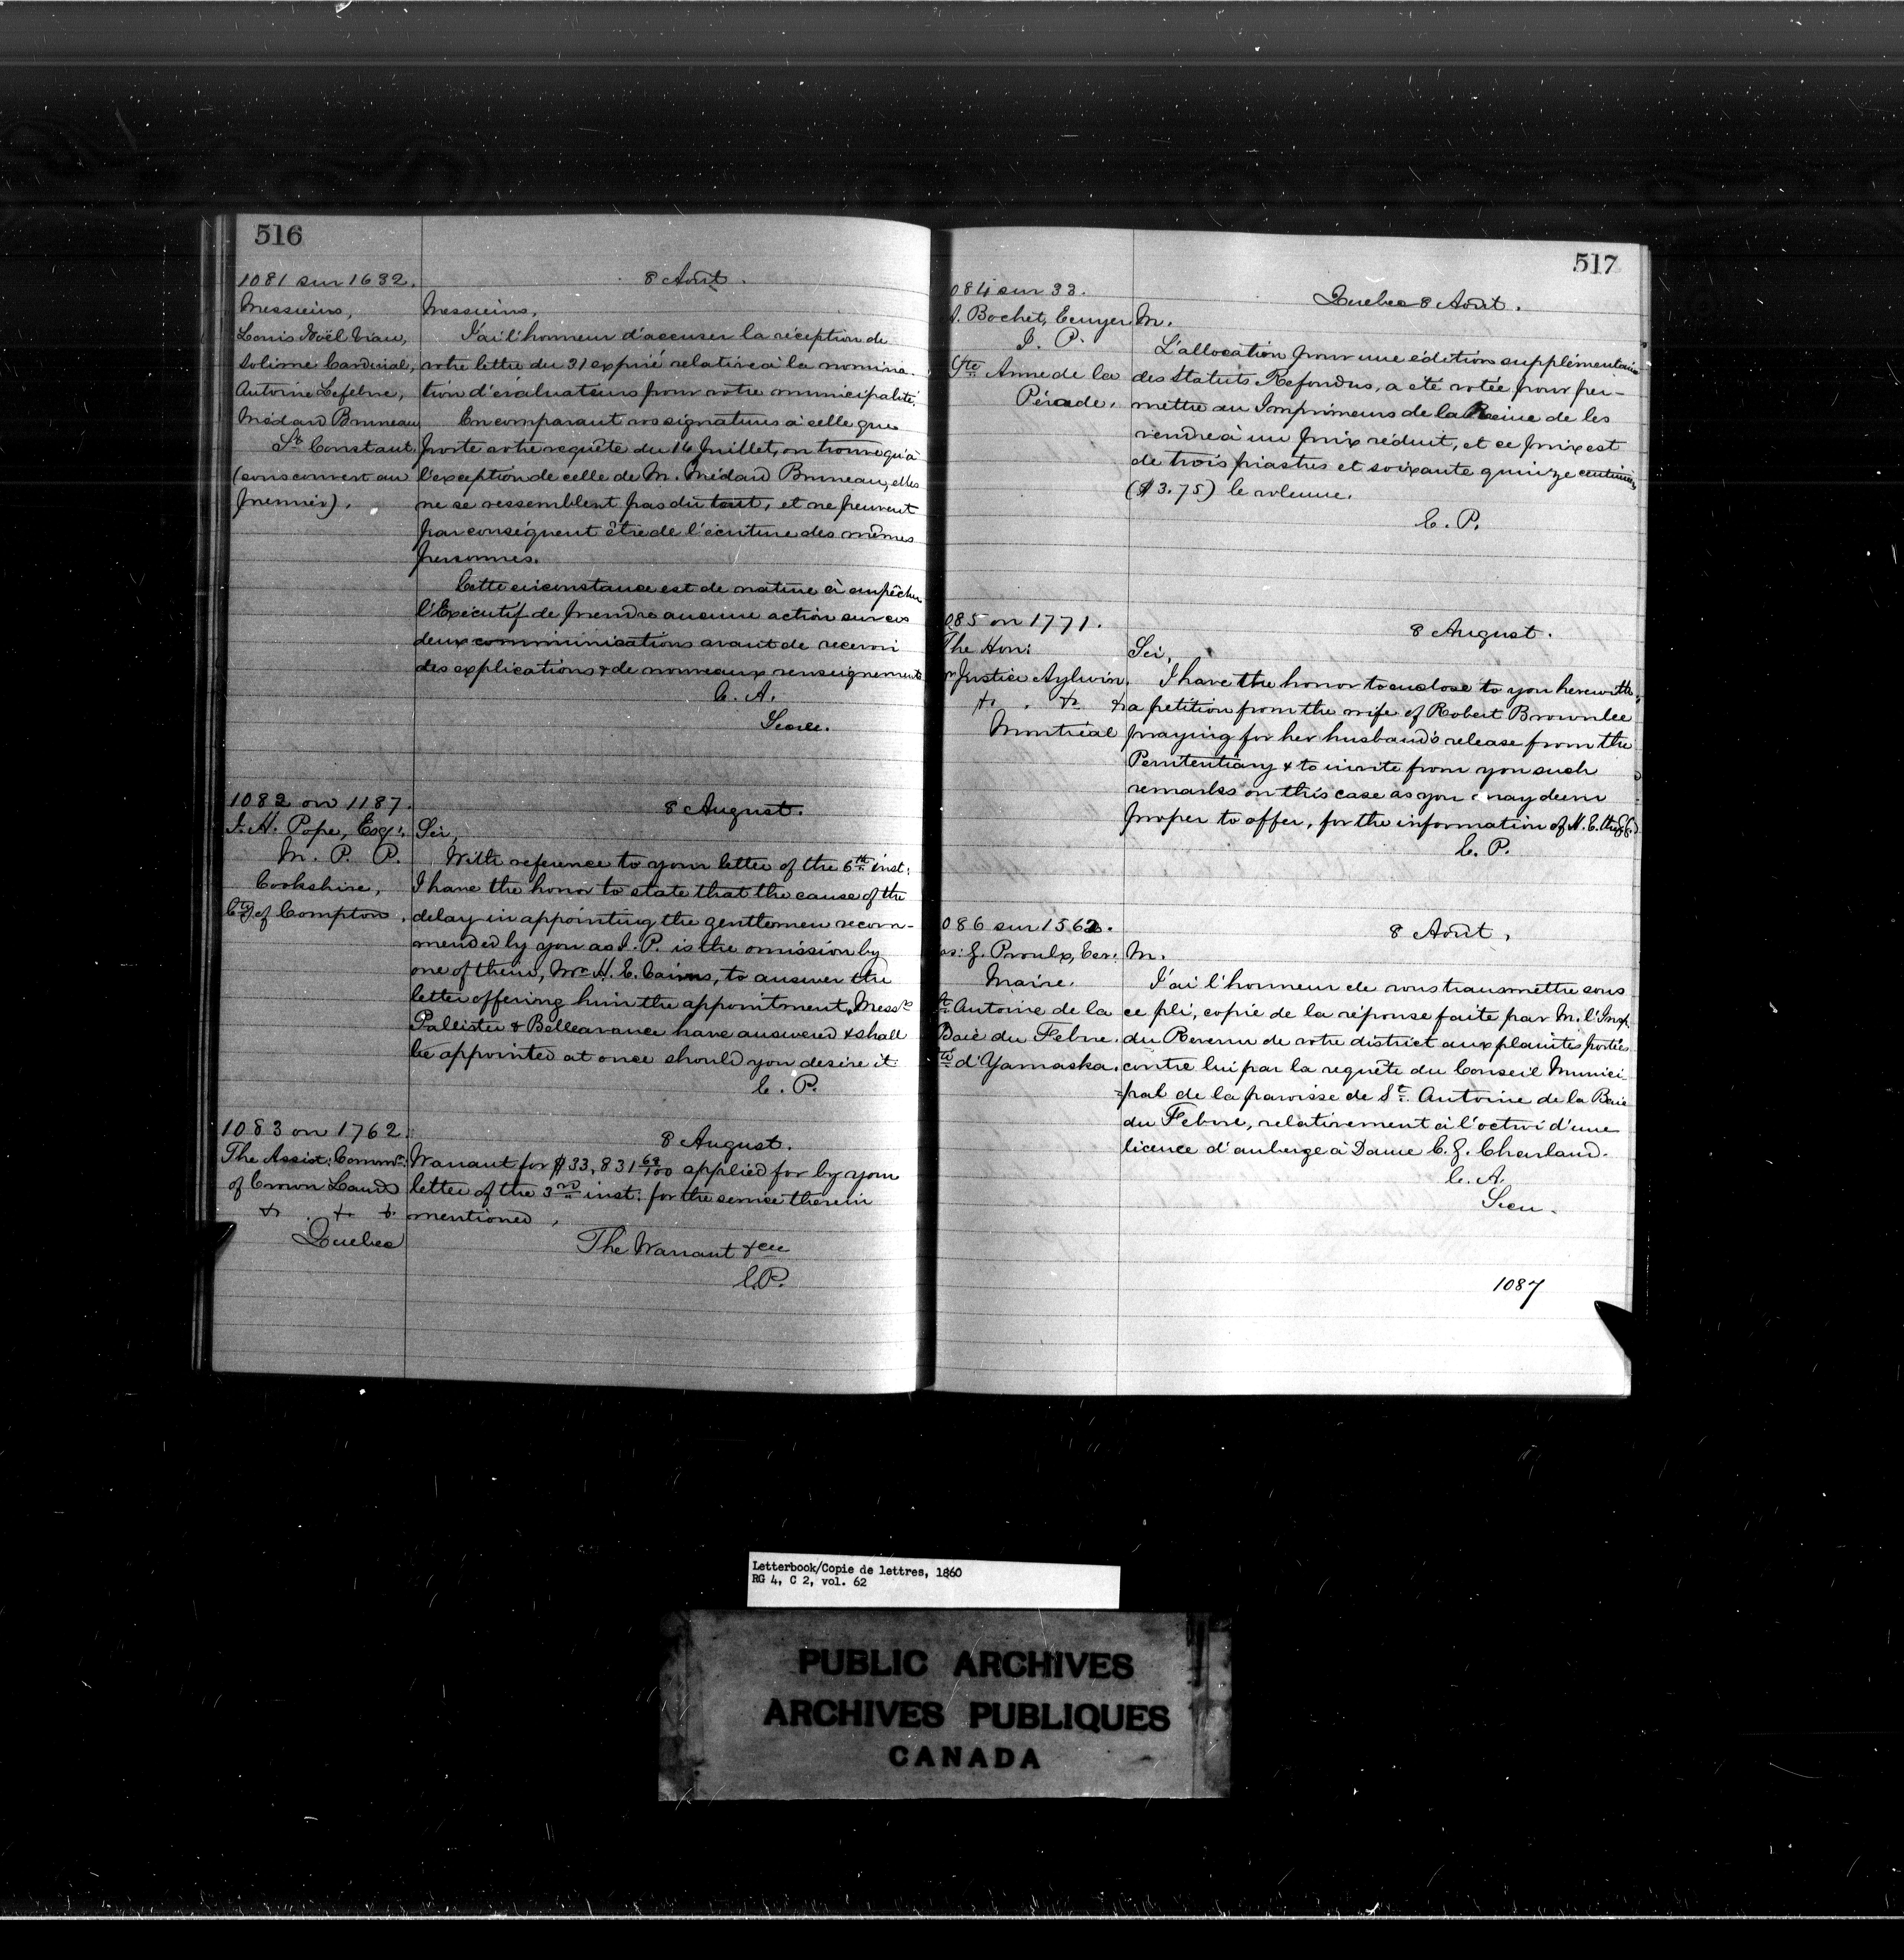 516
1081 sur 1632.
8 Août.
Messieurs,
Louis Noël
Solime Cardinal,
Antoine Lefebvre,
Médard Bruneau
St Constant.
(sous couvert au
premier).
Messieurs,
J'ai l'honneur d'accuser la réception de
votre lettre du 31 expiré relative à la nomina-
tion d'évaluateurs pour votre municipalité.
En comparant vos signatures à celle que
porte votre requête du 14 Juillet, on trouve qu'à
l'exception de celle de M. Médard Bruneau, elles
ne se ressemblent pas du tout, et ne peuvent
par conséquent être de l'écriture des mêmes
personnes.
Cette circonstance est de nature à empêcher
l'Exécutif de prendre aucune action sur ces
deux communications avant de recevoir
des explications & de nouveaux renseignements
C. A.
Secre.
1082 on 1187.
8 August.
J. H. Pope, Esqr.
M. P. P.
Cookshire,
Cty of Compton.
Sir,
With reference to your letter of the 6th inst:
I have the honor to state that the cause of the
delay in appointing the gentlemen recom-
mended by you as J. P. is the omission by
one of them, Mr H. E. Cairns, to answer the
letter offering him the appointment. Messrs
Pallister & Bellearance have answered & shall
be appointed at once should you desire it
C. P.
1083 on 1762.
8 August.
The Assist: Commr:
of Crown Lands
& & &
Quebec
Warrant for $33,831 69/100 applied for by your
letter of the 3rd inst: for the service therein
mentioned,
The Warrant &ce
C.P.
517
084 sur 33.
Quebec 8 Août.
A. Bochet, Ecuyer
J. P.
Ste Anne de la
Pérade.
M.
L'allocation pour une édition supplémentaire
des Statuts Refondus, a été votée pour per-
mettre au Imprimeurs de la Reine de les
vendre à un prix réduit, et ce prix est
de trois piastres et soixante quinze centimes
($3.75) le volume.
C. P.
085 on 1771.
8 August.
The Hon:
Mr Justice Aylwin.
& & &
Montréal
Sir,
I have the honor to enclose to you herewith
a petition from the wife of Robert Brownlee
praying for her husband's release from the
Penitentiary & to invite from you such
remarks on this case as you may deem
proper to offer, for the information of H. E. the
C. P.
086 sur 1562.
8 Août,
J. Proulx, Ecr:
Maire.
St Antoine de la
Baie du Febvre.
Cté d'Yamaska.
M.
J'ai l'honneur de vous transmettre sous
ce pli, copie de la réponse faite par M. l'Insp.
du Revenu de votre district aux plaintes portées
contre lui par la requête du Conseil Munici-
pal de la paroisse de St. Antoine de la Baie
du Febvre, relativement à l'octroi d'une
licence d'auberge à Dame C. J. Charland.
C. A.
Secre.
1087
Letterbook/Copie de lettres, 1860
RG 4, C 2, vol. 62
PUBLIC ARCHIVES
ARCHIVES PUBLIQUES
CANADA